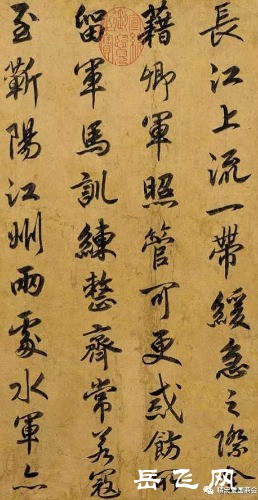 長江上流一帶緩急之際全
藉卿軍照管可更戒飭所
留軍馬訓練整齊常若寇
至蘄陽江州兩處水軍亦
岳飞网